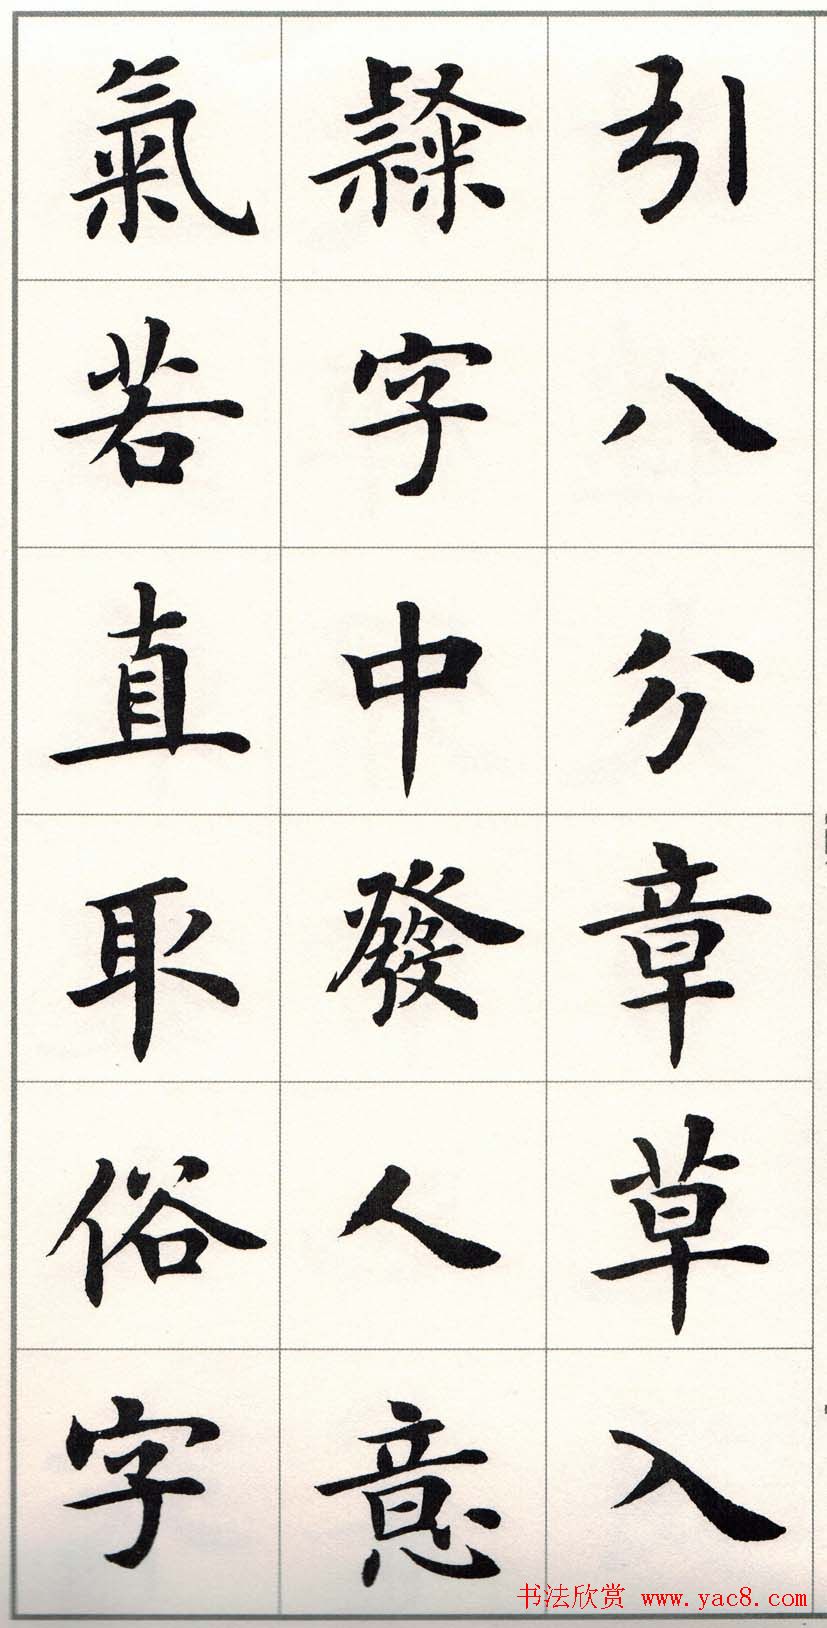 引八分章草入
隸字中發人意
氣若直取俗字
书法欣赏 www.yac8.com